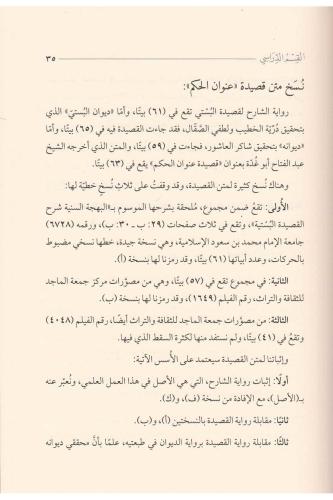 القِسْمُ الدِّرَاسِي ٣٥
نُسَخ متن قصيدة «عنوان الحكم»:
رواية الشارح لقصيدة البُستي تقع في (٦١) بيتًا، وأمّا «ديوان البستيّ» الذي
بتحقيق دُرّيّة الخطيب ولطفي الصَّقّال، فقد جاءت القصيدة فيه في (٦٥) بيتًا، وأمّا
«ديوانه» بتحقيق شاكر العاشور، فجاءت في (٥٩) بيتًا، والمتن الذي أخرجه الشيخ
عبد الفتاح أبو غُدّة بعنوان «قصيدة عنوان الحكم» يقع في (٦٣) بيتًا.
وهناك نُسخ كثيرة لمتن القصيدة، وقد وقفتُ على ثلاثِ نُسخٍ خطيّة لها:
الأُولى: تقعُ ضمن مجموع، مُلحقة بشرحها الموسوم بـ«البهجة السنية شرح
القصيدة البُستيّة»، وتقع في ثلاث صفحات (٢٩: ب - ٣٠: ب)، ورقمه (٦٧٢٨)
جامعة الإمام محمد بن سعود الإسلامية، وهي نسخة جيدة، خطها نسخي مضبوط
بالحركات، وعدد أبياتها (٦١) بيتًا، وقد رمزنا لها بنسخة (أ).
الثانية: في مجموع تقع في (٥٧) بيتًا، وهي من مصوّرات مركز جمعة الماجد
للثقافة والتراث، رقم الفيلم (١٦٤٩)، وقد رمزنا لها بنسخة (ب).
الثالثة: من مصوّرات جمعة الماجد للثقافة والتراث أيضًا، رقم الفيلم (٤٠٤٨)
وتقعُ في (٤١) بيتًا، ولم نستفد منها لكثرة السقط الذي فيها.
وإثباتنا لمتن القصيدة سيعتمد على الأُسس الآتية:
أولًا: إثبات رواية الشارح، التي هي الأصل في هذا العمل العلمي، ونُعبّر عنه
بـ(الأصل)، مع الإفادة من نسخة (ف)، و(ك).
ثانيًا: مقابلة رواية القصيدة بالنسختين (أ)، و(ب).
ثالثًا: مقابلة رواية القصيدة برواية الديوان في طبعتيه، علمًا بأنَّ محققي ديوانه